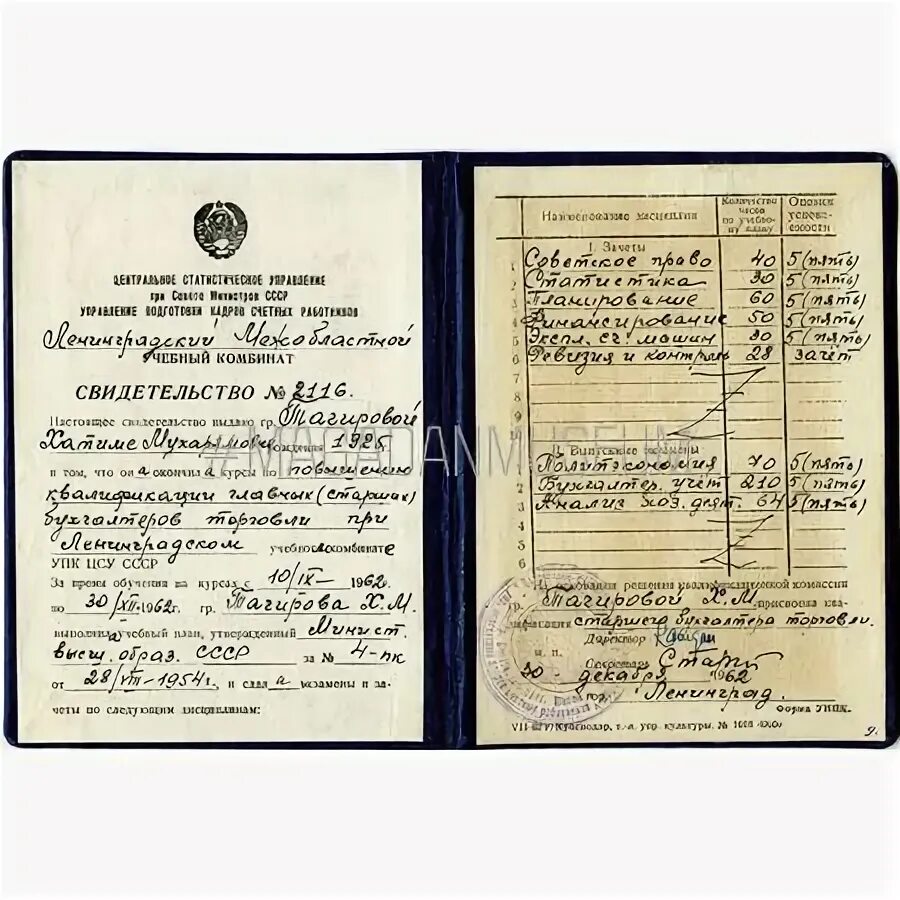 ЦЕНТРАЛЬНОЕ СТАТИСТИЧЕСКОЕ УПРАВЛЕНИЕ
при Совете Министров СССР
УПРАВЛЕНИЕ ПОДГОТОВКИ КАДРОВ СЧЕТНЫХ РАБОТНИКОВ
Ленинградский Межобластной
УЧЕБНЫЙ КОМБИНАТ
СВИДЕТЕЛЬСТВО № 2116.
Настоящее свидетельство выдано гр. Тагировой
Хатиме Мухарямовне рождения 1925
в том, что она окончила курсы по повышению
квалификации главных (старших)
бухгалтеров торговли при
Ленинградском учебном комбинате
УПК ЦСУ СССР
За время обучения на курсах с 10/IX– 1962г.
по 30/XII-1962г. гр. Тагирова Х.М.
выполнила учебный план, утвержденный Минист.
высш. образ. СССР за № 4-пк
от 28/VIII-1954г, и сдала экзамены и за-
четы по следующим дисциплинам:
Наименование дисциплин
Количество часов по учебно-му плану
Оценки успева-емости
I. Зачеты
1 Советское право 40 5 (пять)
2 Статистика 30 5 (пять)
3 Планирование 60 5 (пять)
4 Финансирование 50 5 (пять)
5 Экспл. сч. машин 30 5 (пять)
6 Ревизия и контроль 28 зачёт
7
8
9
10
II. Выпускные экзамены
1 Политэкономия 70 5 (пять)
2 Бухгалтер. учёт 210 5 (пять)
3 Анализ хоз. деят. 64 5 (пять)
4
5
6
На основании решения квалификационной комиссии
гр. Тагировой Х.М. присвоена ква-
лификация старшего бухгалтера торговли.
Директор
м. п.
Секретарь
30 декабря 1962
гор. Ленинград.
Форма УПК.
Краснодар, тип. упр. культуры. №
9.
#MAGADANMUSEUM